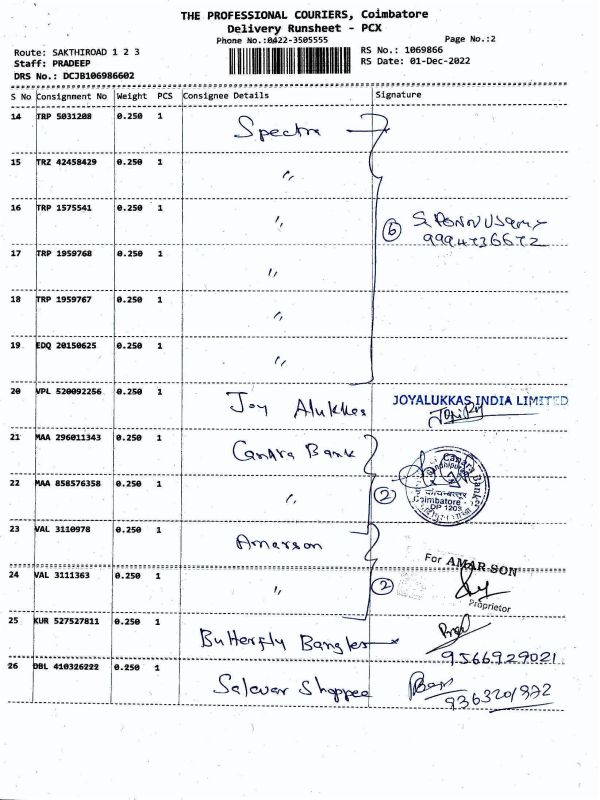 THE PROFESSIONAL COURIERS, Coimbatore
Delivery Runsheet - PCX
Phone No.:0422-3505555
Page No.:2
Route: SAKTHIROAD 1 2 3
RS No.: 1069866
Staff: PRADEEP
RS Date: 01-Dec-2022
DRS No.: DCJB106986602
S No Consignment No Weight PCS Consignee Details Signature
14 TRP 5031208 0.250 1 Spectra
15 TRZ 42458429 0.250 1 "
16 TRP 1575541 0.250 1 "
6 S. PONNUSamy
9994736672
17 TRP 1959768 0.250 1 "
18 TRP 1959767 0.250 1 "
19 EDQ 20150625 0.250 1 "
20 VPL 520092256 0.250 1 Joy Alukkas JOYALUKKAS INDIA LIMITED
21 MAA 296011343 0.250 1 Canara Bank
22 MAA 858576358 0.250 1 " 2
Canara Bank
Coimbatore
DP 1203
23 VAL 3110978 0.250 1 Amarson
For AMAR SON
24 VAL 3111363 0.250 1 " 2
Proprietor
25 KUR 527527811 0.250 1 Butterfly Bangles
9566929021
26 DBL 410326222 0.250 1 Salwar Shoppee